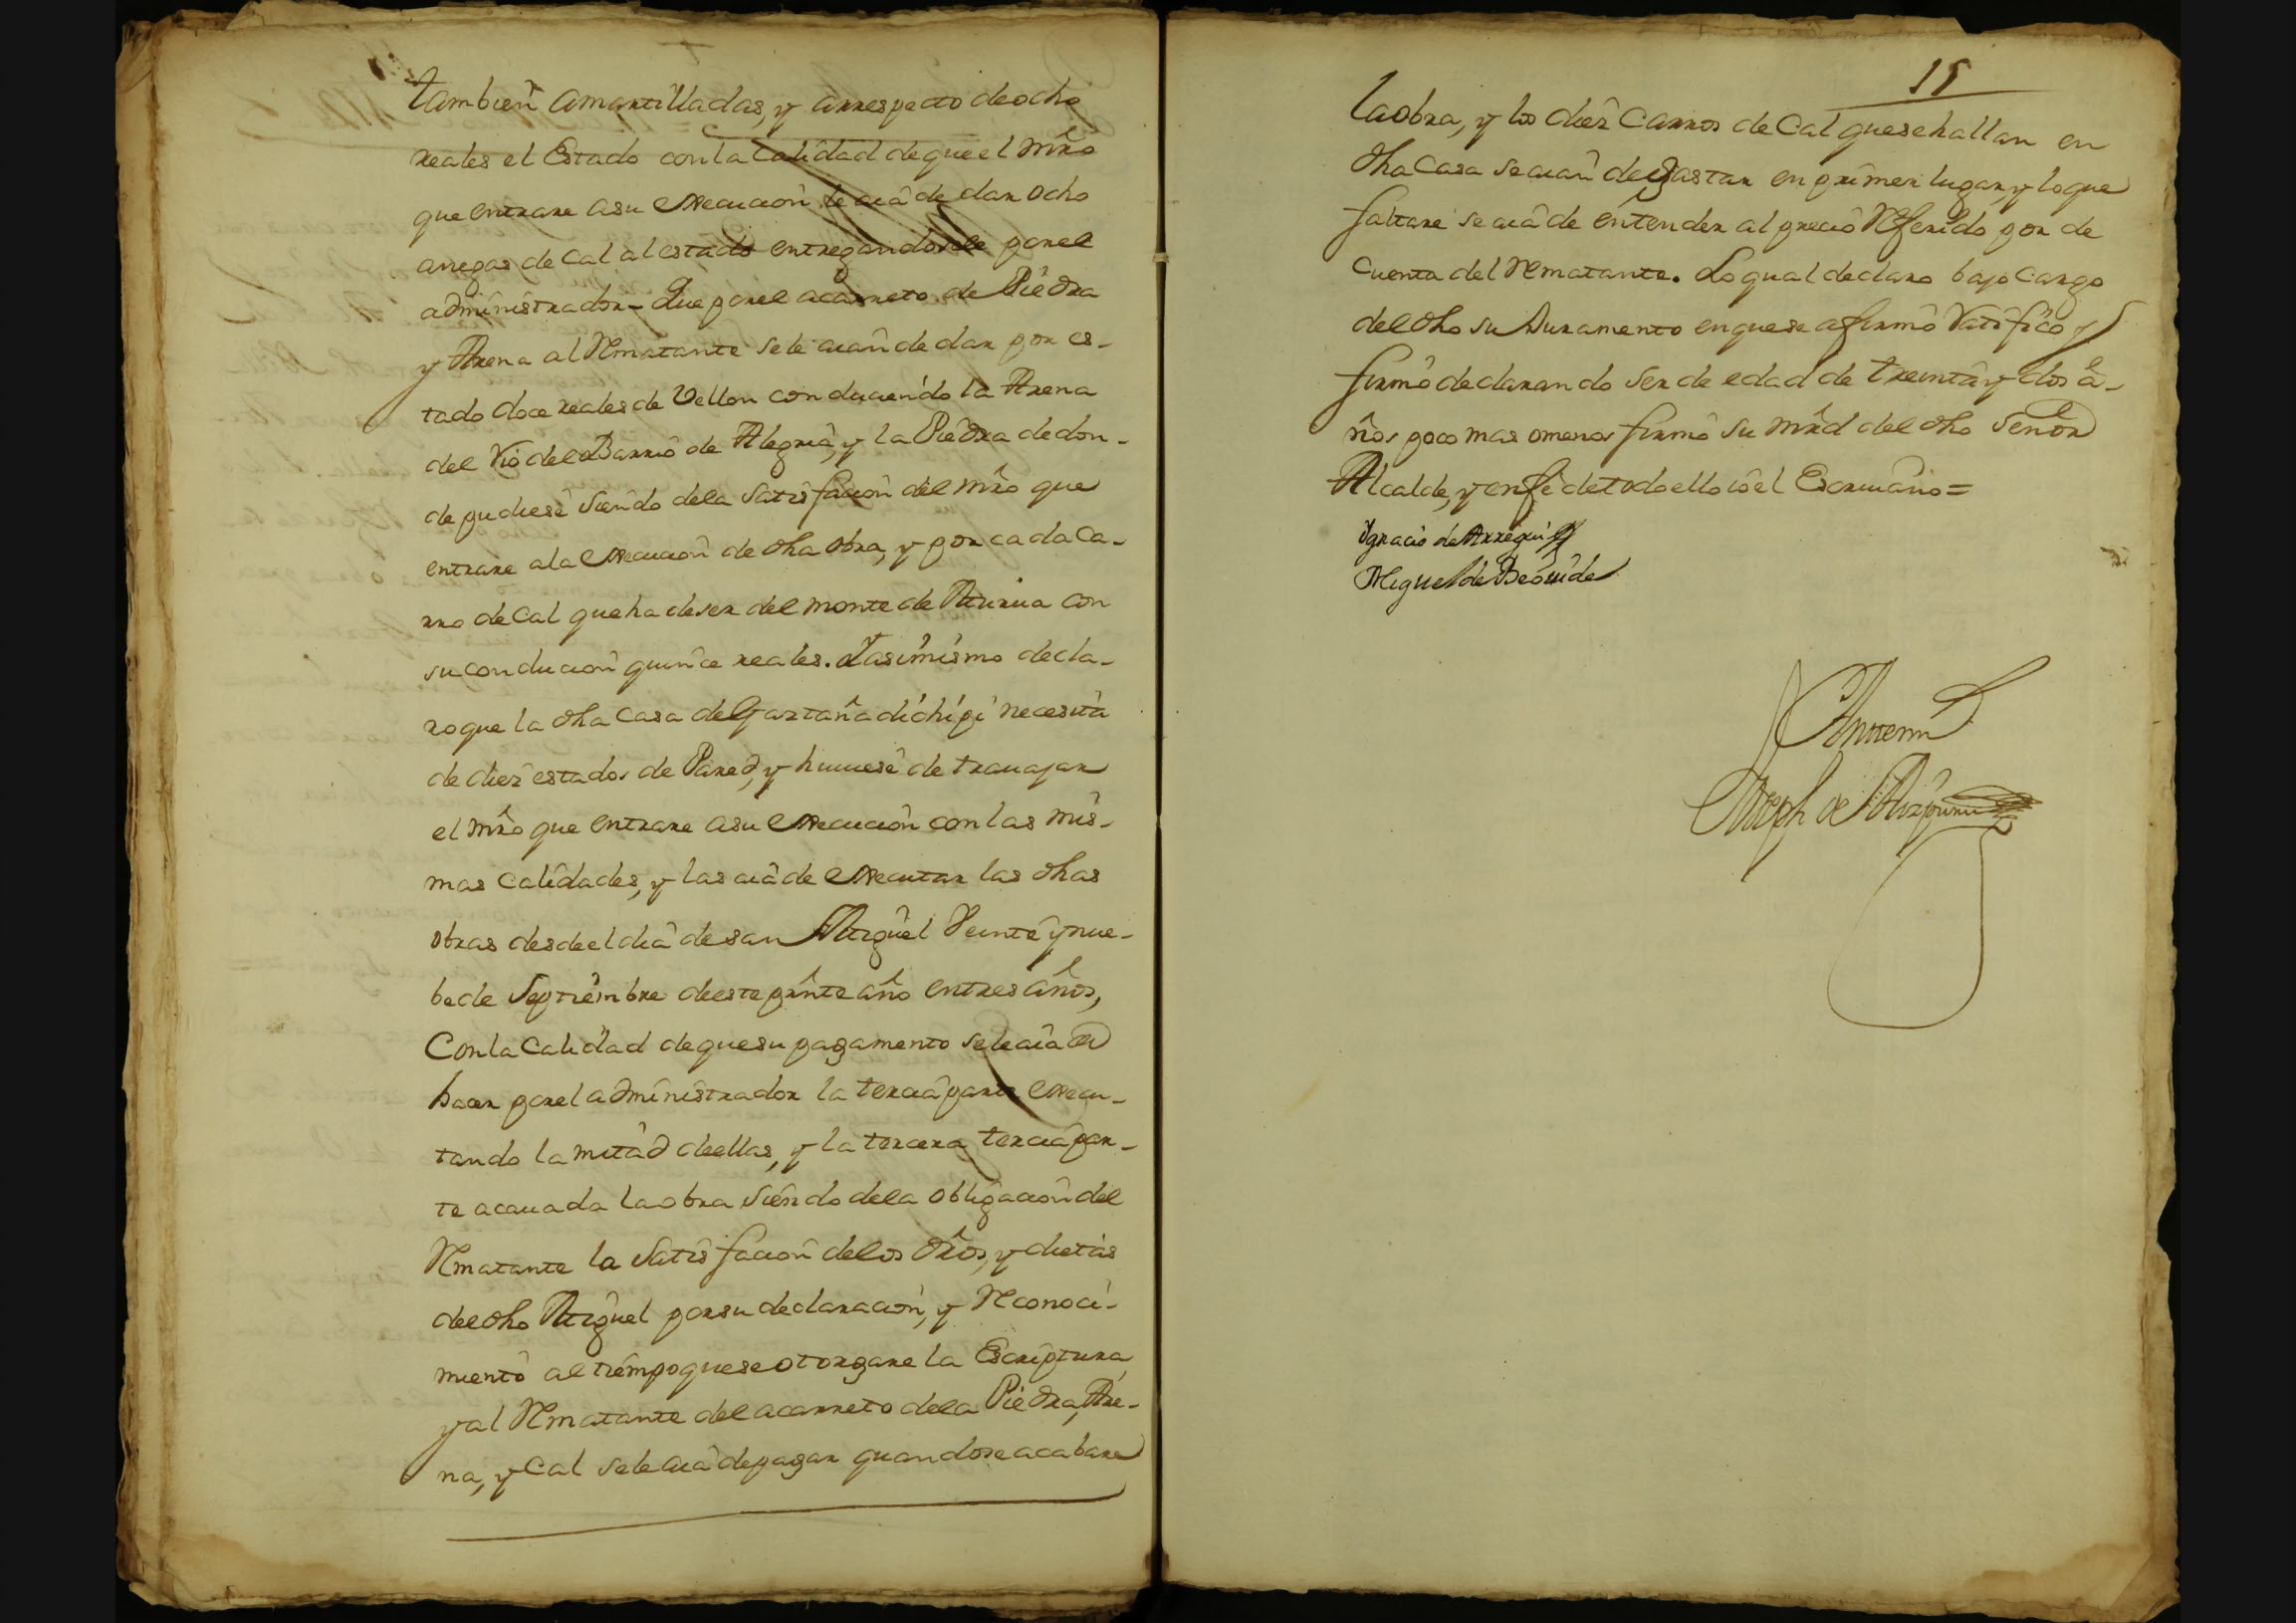 tambien amartilladas, y arrespecto de ocho
reales el Estado con la Calidad de que el mro
que entrare a su execucion se aia de dar ocho
anegas de Cal al estado entregandosele por el
administrador - Que por el acarreto de Piedra
y Arena al Rematante se le aian de dar por es-
tado doce reales de Vellon conduciendo la Arena
del Rio del Barrio de Alegria, y la Piedra de don-
de pudiese siendo de la satisfacion del mro que
entrare a la execucion de dha obra, y por cada Ca-
rro de Cal que ha de ser del monte de Murua con
su conducion quince reales. Y asimismo decla-
ro que la dha Casa de Gaztañadichipi necesita
de diez estados de Pared, y huuiese de trauajar
el mro que entrare a su execucion con las mis-
mas Calidades, y las aia de executar las dhas
obras desde el dia de san Miguel Veinte y nue-
be de Septiembre de este prnte año en tres años,
Con la Calidad de que su pagamento se le aia de
hacer por el administrador la tercia parte execu-
tando la mitad de ellas, y la tercera tercia par-
te acauada la obra siendo de la obligacion del
Rematante la Satisfacion de los dros, y dietas
del dho Miguel por su declaracion, y Reconoci-
miento al tiempo que se otorgare la Escriptura
y al Rematante del acarreto de la Piedra, Are-
na, y Cal se le aia de pagar quando se acabare
15
la obra, y los diez Carros de Cal que se hallan en
dha Casa se aian de gastar en primer lugar, y lo que
faltare se aia de entender al precio Referido por de
cuenta del Rematante. Lo qual declaro bajo cargo
del dho su Juramento en que se afirmó Ratificó y
firmó declarando ser de edad de treinta y dos a-
ños poco mas o menos firmó su mrd del dho Señor
Alcalde, y en fé de todo ello io el Escriuano =
Ygnacio de Arregui
Miguel de Beouide
Antemi
Joseph de Aizpuru